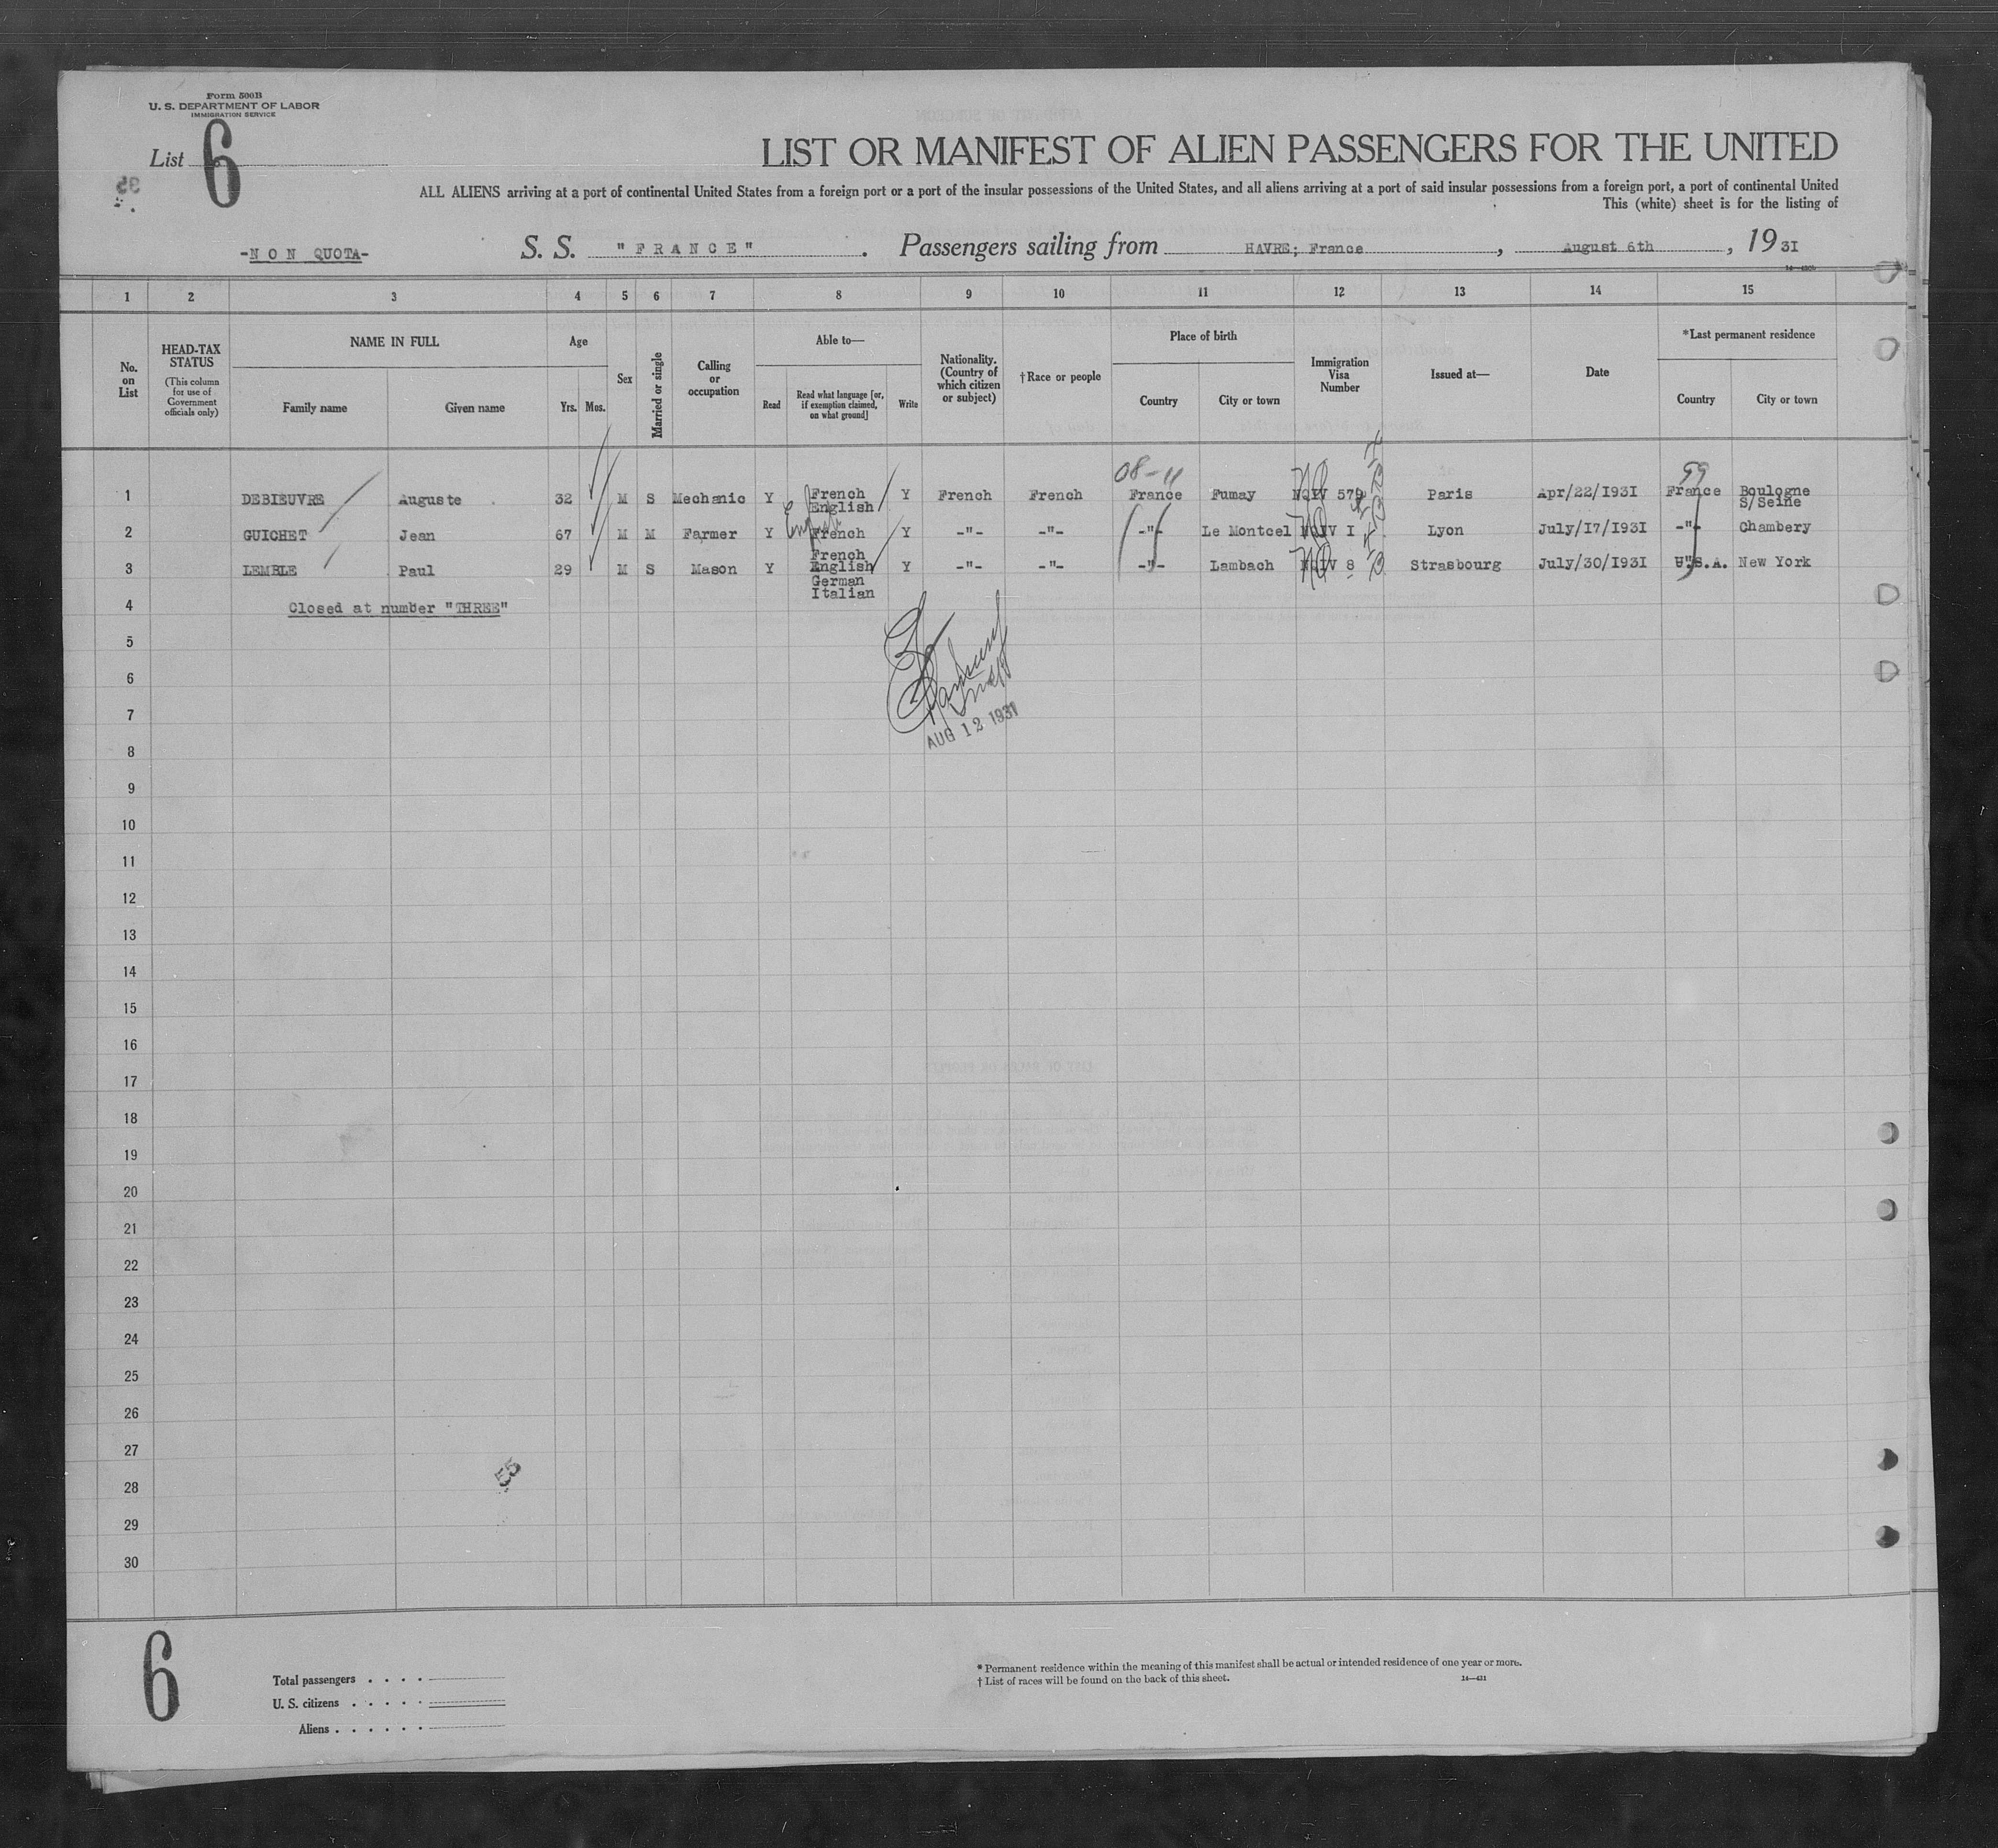 Form 500B
U. S. DEPARTMENT OF LABOR
IMMIGRATION SERVICE
List 6
LIST OR MANIFEST OF ALIEN PASSENGERS FOR THE UNITED
ALL ALIENS arriving at a port of continental United States from a foreign port or a port of the insular possessions of the United States, and all aliens arriving at a port of said insular possessions from a foreign port, a port of continental United
This (white) sheet is for the listing of
-N O N QUOTA- S. S. "F R A N C E". Passengers sailing from HAVRE; France, August 6th, 1931
1 2 3 4 5 6 7 8 9 10 11 12 13 14 15
No. on List
HEAD-TAX STATUS
(This column for use of Government officials only)
NAME IN FULL
Family name Given name
Age
Yrs. Mos.
Sex
Married or single
Calling or occupation
Able to—
Read
Read what language [or, if exemption claimed, on what ground]
Write
Nationality. (Country of which citizen or subject)
†Race or people
Place of birth
Country City or town
Immigration Visa Number
Issued at—
Date
*Last permanent residence
Country City or town
08-11 59
1 DEBIEUVRE Auguste 32 M S Mechanic Y French English Y French French France Fumay NQIV 579 Paris Apr/22/1931 France Boulogne S/Seine
2 GUICHET Jean 67 M M Farmer Y French Y -"- -"- -"- Le Montcel NQIV I Lyon July/17/1931 -"- Chambery
3 LEMBLE Paul 29 M S Mason Y French English German Italian Y -"- -"- -"- Lambach NQIV 8 Strasbourg July/30/1931 U.S.A. New York
4 Closed at number "THREE"
5
6
7
AUG 12 1931
8
9
10
11
12
13
14
15
16
17
18
19
20
21
22
23
24
25
26
27
55
28
29
30
6
Total passengers
U. S. citizens
Aliens
* Permanent residence within the meaning of this manifest shall be actual or intended residence of one year or more.
† List of races will be found on the back of this sheet.
14—421